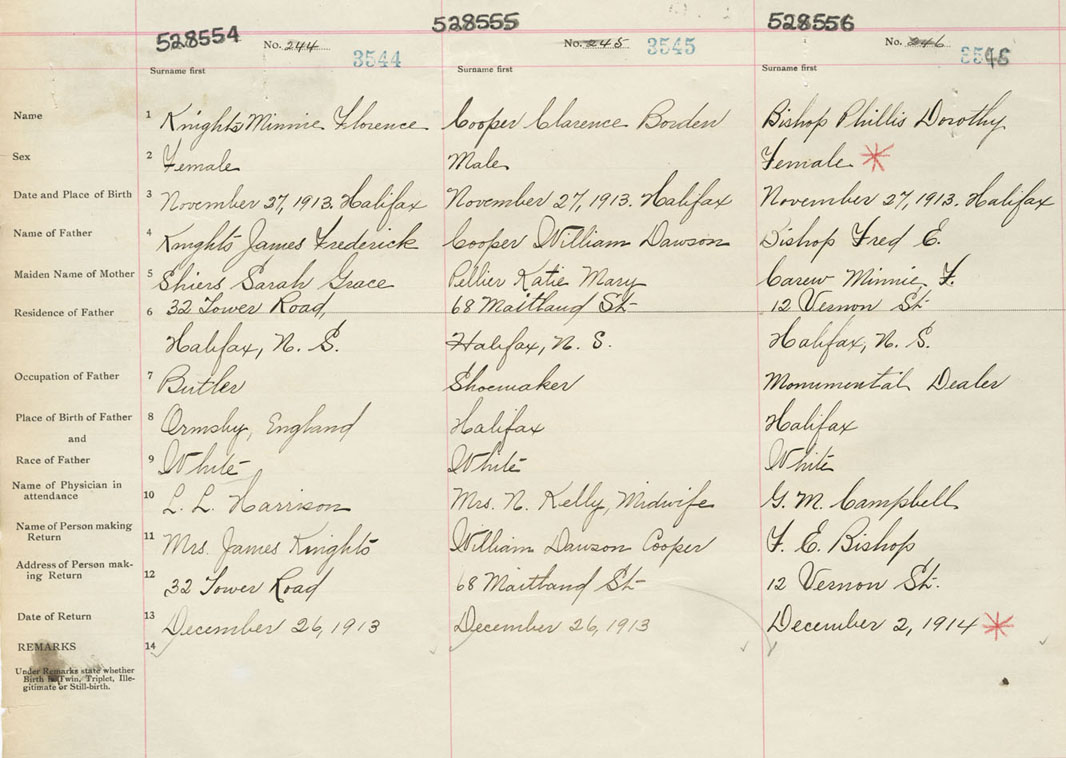 528554 528555 528556
No. 244 3544 No. 245 3545 No. 246 3546
Surname first Surname first Surname first
Name 1 Knights Minnie Florence Cooper Clarence Borden Bishop Phillis Dorothy
Sex 2 Female Male Female
Date and Place of Birth 3 November 27, 1913. Halifax November 27, 1913. Halifax November 27, 1913. Halifax
Name of Father 4 Knights James Frederick Cooper William Dawson Bishop Fred E.
Maiden Name of Mother 5 Shiers Sarah Grace Pellier Katie Mary Carew Minnie F.
Residence of Father 6 32 Tower Road, 68 Maitland St 12 Vernon St
Halifax, N. S. Halifax, N. S. Halifax, N. S.
Occupation of Father 7 Butler Shoemaker Monumental Dealer
Place of Birth of Father 8 Ormsby, England Halifax Halifax
and
Race of Father 9 White White White
Name of Physician in
attendance 10 L. L. Harrison Mrs. N. Kelly, Midwife G. M. Campbell
Name of Person making
Return 11 Mrs. James Knights William Dawson Cooper F. E. Bishop
Address of Person mak-
ing Return 12 32 Tower Road 68 Maitland St 12 Vernon St.
Date of Return 13 December 26, 1913 December 26, 1913 December 2, 1914
REMARKS 14
Under Remarks state whether
Birth is Twin, Triplet, Ille-
gitimate or Still-birth.